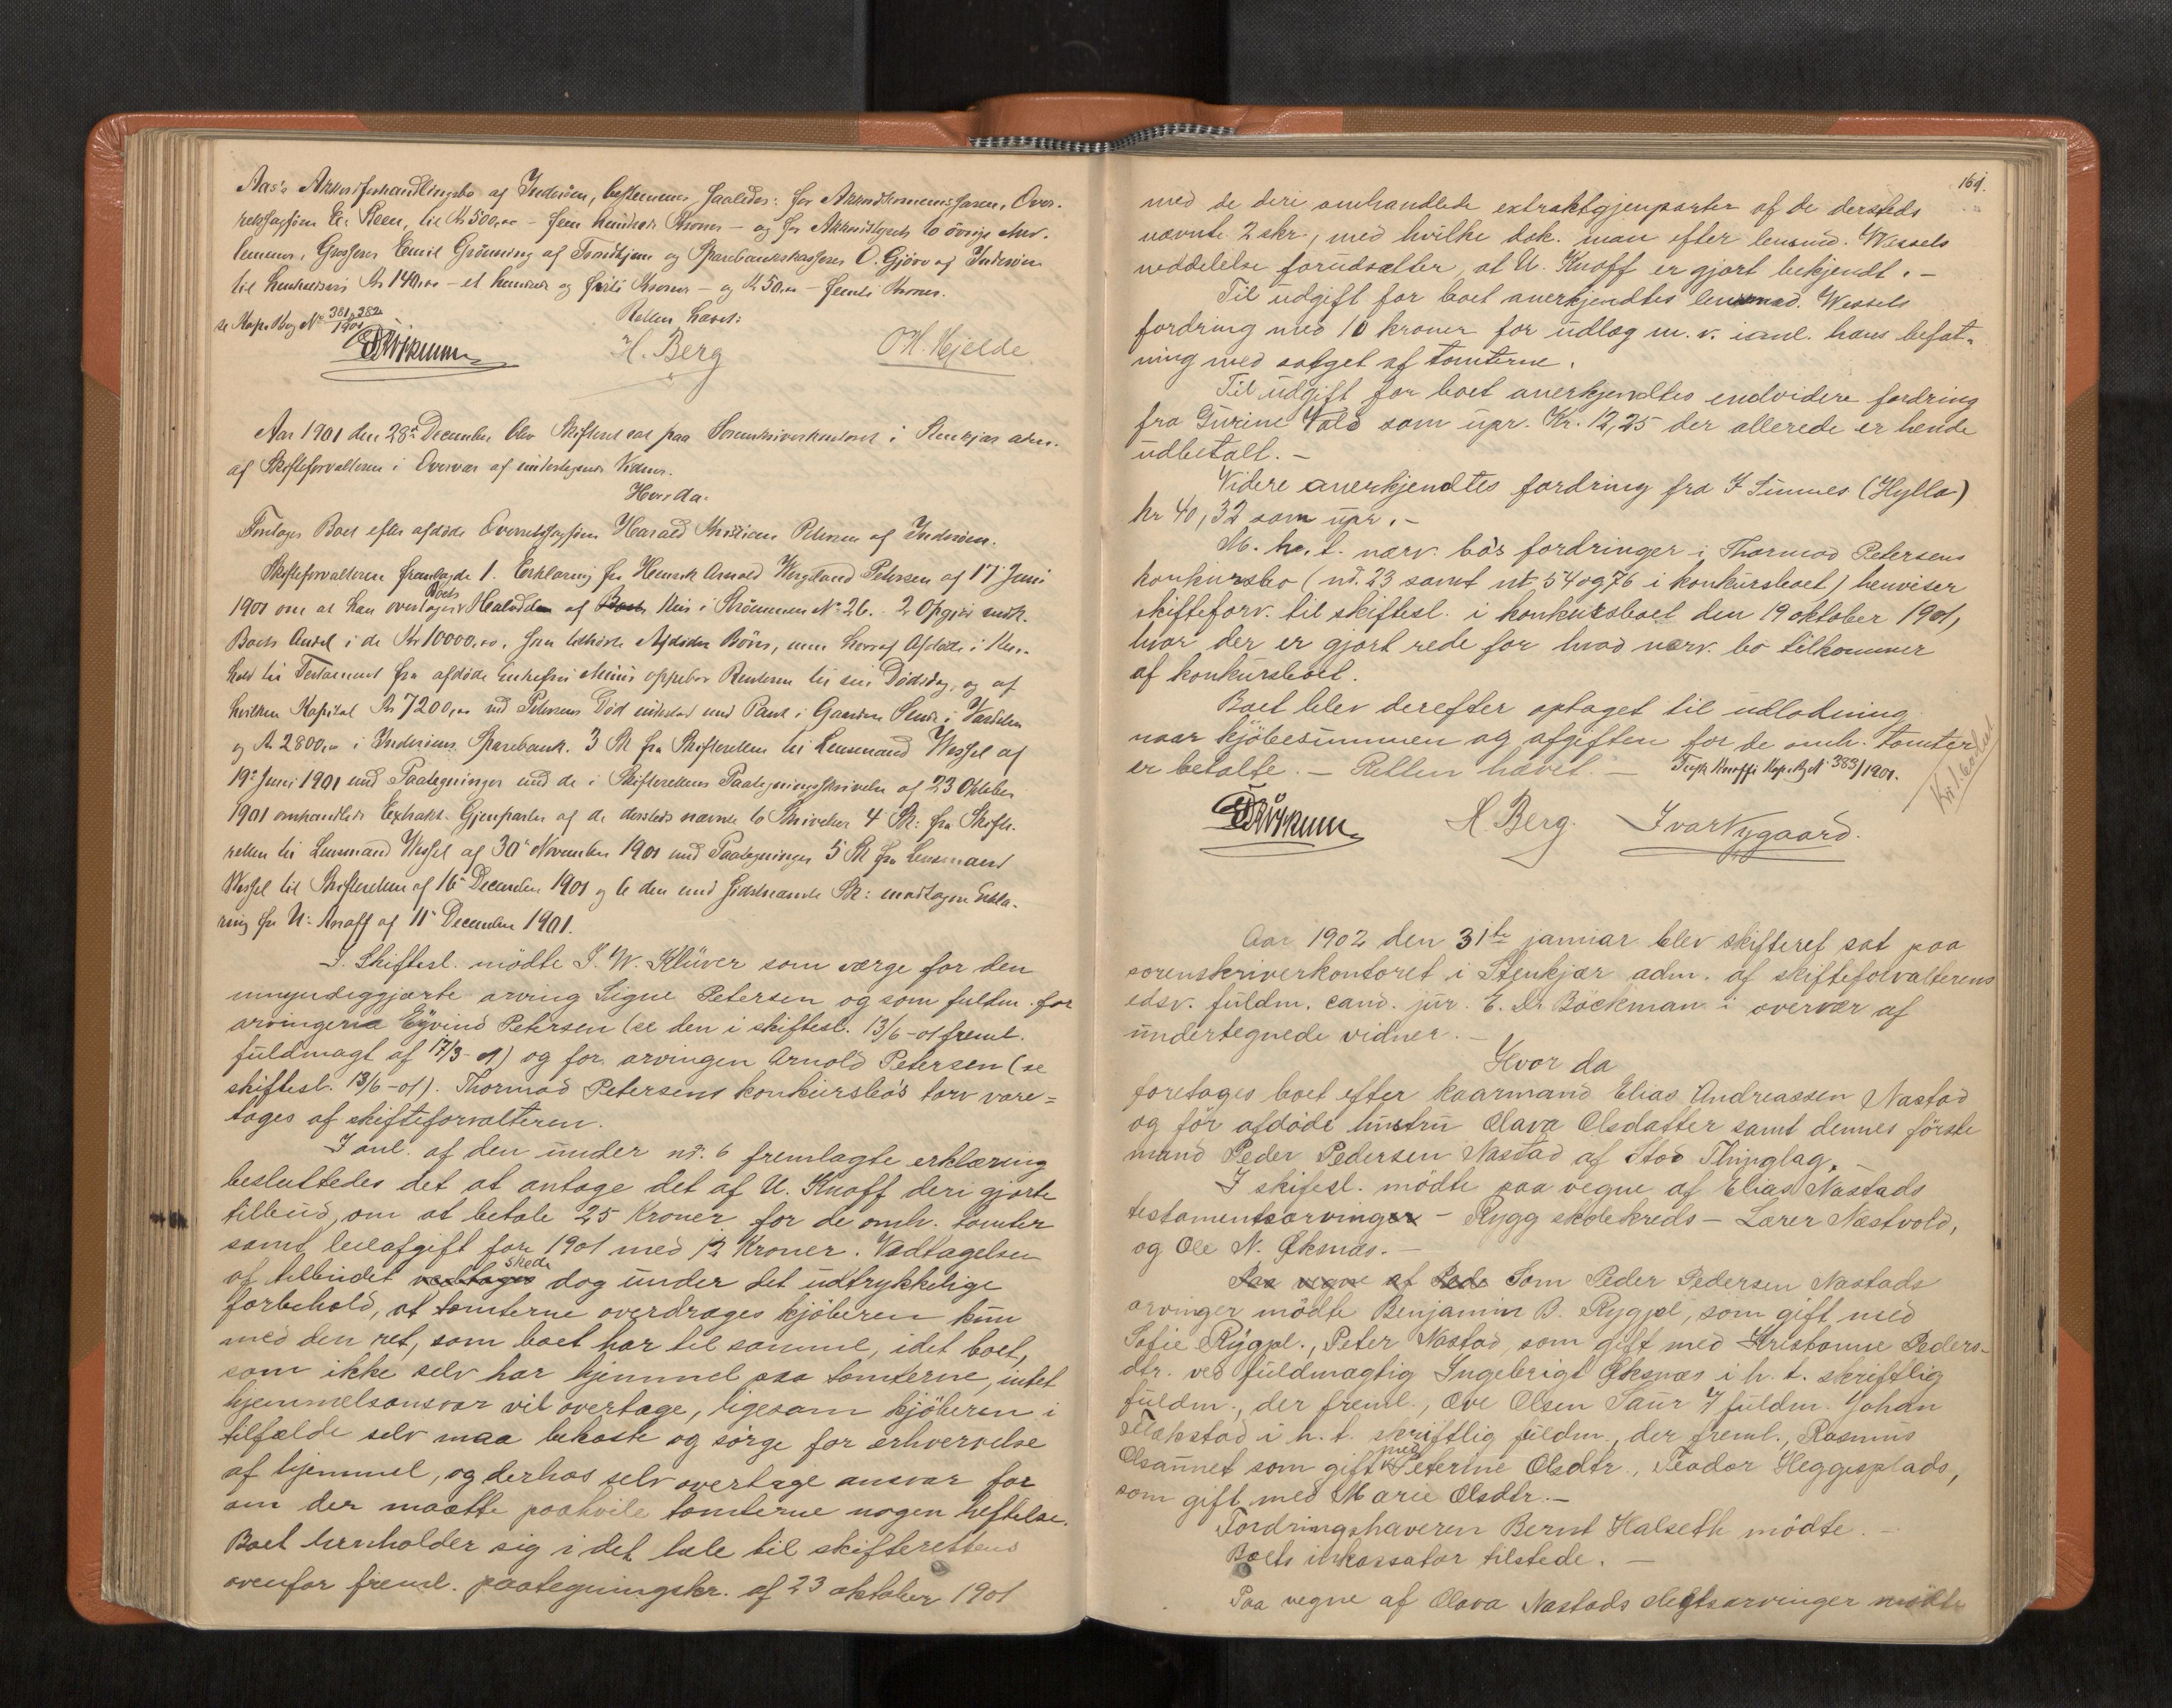 Aas's Akkordforhandlingsbo af Inderöen, bestemmes saaledes: for Akkordkommissæren, Over-
retssagfører Steen, til Kr 500,00 – fem hundrede Kroner – og for Akkordstyrets to övrige Med-
lemmer, Grosserer Emil Grönning af Trondhjem og Sparebankkasserer O. Gjörv af Inderöen
til henholdsvis Kr 140,00 – et hundrede og förti Kroner – og Kr 50,00 – femti Kroner.
se Kopi Bog No 381, 382/1901
Retten hævet:
H. Berg
O.H. Hjelde
Aar 1901 den 28de December blev Skifteret sat paa Sorenskriverkontoret i Stenkjær adm.
af Skifteforvalteren i Overvær af undertegnede Vidner.
Hvor da:
Foretages Boet efter afdöde Overretssagförer Harald Kristian Petersen af Inderöen.
Skifteforvalteren fremlagde 1. Erklæring fra Henrik Arnold Wergeland Petersen af 17 Juni
1901 om at han overtager Boets Halvdel af Huset i Strömmen No 26. 2 Opgjör vedk.
Boets Andel i de Kr 10000,00, som tilhörte Afdödes Börn, men hvoraf Afdöde i Hen-
hold til Testament fra afdöde Enkefru oppebar Renterne til sin Dödsdag, og af
hvilken Kapital Kr 7200,00 ved Petersens Död indestod mod Pant i Gaarden i Værdalen
og Kr 2800,00 i Inderöens Sparebank. 3 Sk fra Skifteretten til Lensmand Wessel af
19de Juni 1901 med Paategninger med de i Skifterettens Paategningsskrivelse af 23 Oktober
1901 omhandlede Extrakt-Gjenparter af de dersteds nævnte to Skrivelser 4 Sk: fra Skifte-
retten til Lensmand Wessel af 30te November 1901 med Paategninger 5 Sk fra Lensmand
Wessel til Skifteretten af 16de December 1901 og 6 den med sidstnævnte Sk: modtagne Erklæ-
ring fra U: Knoff af 11te December 1901.
I. Skiftesl. mödte J. W. Klüver som værge for den
umyndiggjorte arving Signe Petersen og som fuldm. for
arvingerne Eyvind Petersen (se den i skiftesl. 13/6-01 freml.
fuldmagt af 17/3-01) og for arvingen Arnold Petersen (se
skiftesl. 13/6-01). Thormod Petersens konkursbo's tarv vare=
tages af skifteforvalteren.
I anl. af den under nr. 6 fremlagte erklæring
besluttedes det at antage det af U. Knoff deri gjorte
tilbud, om at betale 25 Kroner for de omh. tomter
samt leieafgift for 1901 med 12 Kroner. Vedtagelsen
af tilbudet vedtages skede dog under det udtrykkelige
forbehold, at tomterne overdrages kjöberen kun
med den ret, som boet har til samme, idet boet,
som ikke selv har hjemmel paa tomterne, intet
hjemmelsansvar vil overtage, ligesom kjöberen i
tilfælde selv maa bekoste og sörge for erhvervelse
af hjemmel, og derhos selv overtage ansvar for
om der maatte paahvile tomterne nogen heftelse.
Boet henholder sig i det hele til skifterettens
ovenfor freml. paategningskr. af 23 oktober 1901
164.
med de deri omhandlede extraktgjenparter af de dersteds
nævnte 2 skr., med hvilke dok. man efter lensmd. Wessels
meddelelse forudsætter, at U. Knoff er gjort bekjendt. –
Til udgift for boet anerkjendtes lensmd. Wessels
fordring med 10 kroner for udlæg m. v. i anl. hans befat-
ning med salget af tomterne.
Til udgift for boet anerkjendtes endvidere fordring
fra Gurine Vold som upr. Kr. 12,25 der allerede er hende
udbetalt. –
Videre anerkjendtes fordring fra J Sunnes (Hylla)
kr 40,32 som upr. –
M. h. t. nærv. bo's fordringer i Thormod Petersens
konkursbo (nr. 23 samt nr. 54 og 76 i konkursboet) henviser
skifteforv. til skiftesl. i konkursboet den 19 oktober 1901,
hvor der er gjort rede for hvad nærv. bo tilkommer
af konkursboet.
Boet blev derefter optaget til udlodning
naar kjöbesummen og afgiften for de omh. tomter
er betalte. – Retten hævet. – Tilsk Knoff i Kop. Bg No 383/1901.
H. Berg. Ivar Nygaard.
Aar 1902 den 31te januar blev skifteret sat paa
sorenskriverkontoret i Stenkjær adm. af skifteforvalterens
edsv. fuldm. cand. jur. E. Dr Böckman i overvær af
undertegnede vidner. –
Hvor da
foretages boet efter kaarmand Elias Andreassen Nastad
og för afdöde hustru Olava Olsdatter samt dennes förste
mand Peder Pedersen Nastad af Stod Thinglag. –
I skiftesl. mödte paa vegne af Elias Nastads
testamentsarvinger – Rygg skolekreds – Lærer Næstvold,
og Ole N. Öksnæs. –
Paa vegne af Peder Som Peder Pedersen Nastads
arvinger mödte Benjamin B. Rygpl., som gift med
Sofie Rygpl., Peter Nastad, som gift med Kristianne Peders-
dtr. ved fuldmægtig Ingebrigt Öksnæs i h. t. skriftlig
fuldm., der freml., Ove Olsen Saur v/ fuldm. Johan
Flækstad i h. t. skriftlig fuldm., der freml., Rasmus
Olsaunet som gift med Peterine Olsdtr., Teodor Heggesplads,
som gift med Marie Olsdtr. –
Fordringshaveren Bernt Halseth mödte. –
Boets inkassator tilstede. –
Paa vegne af Olava Nastads slegtsarvinger mödte